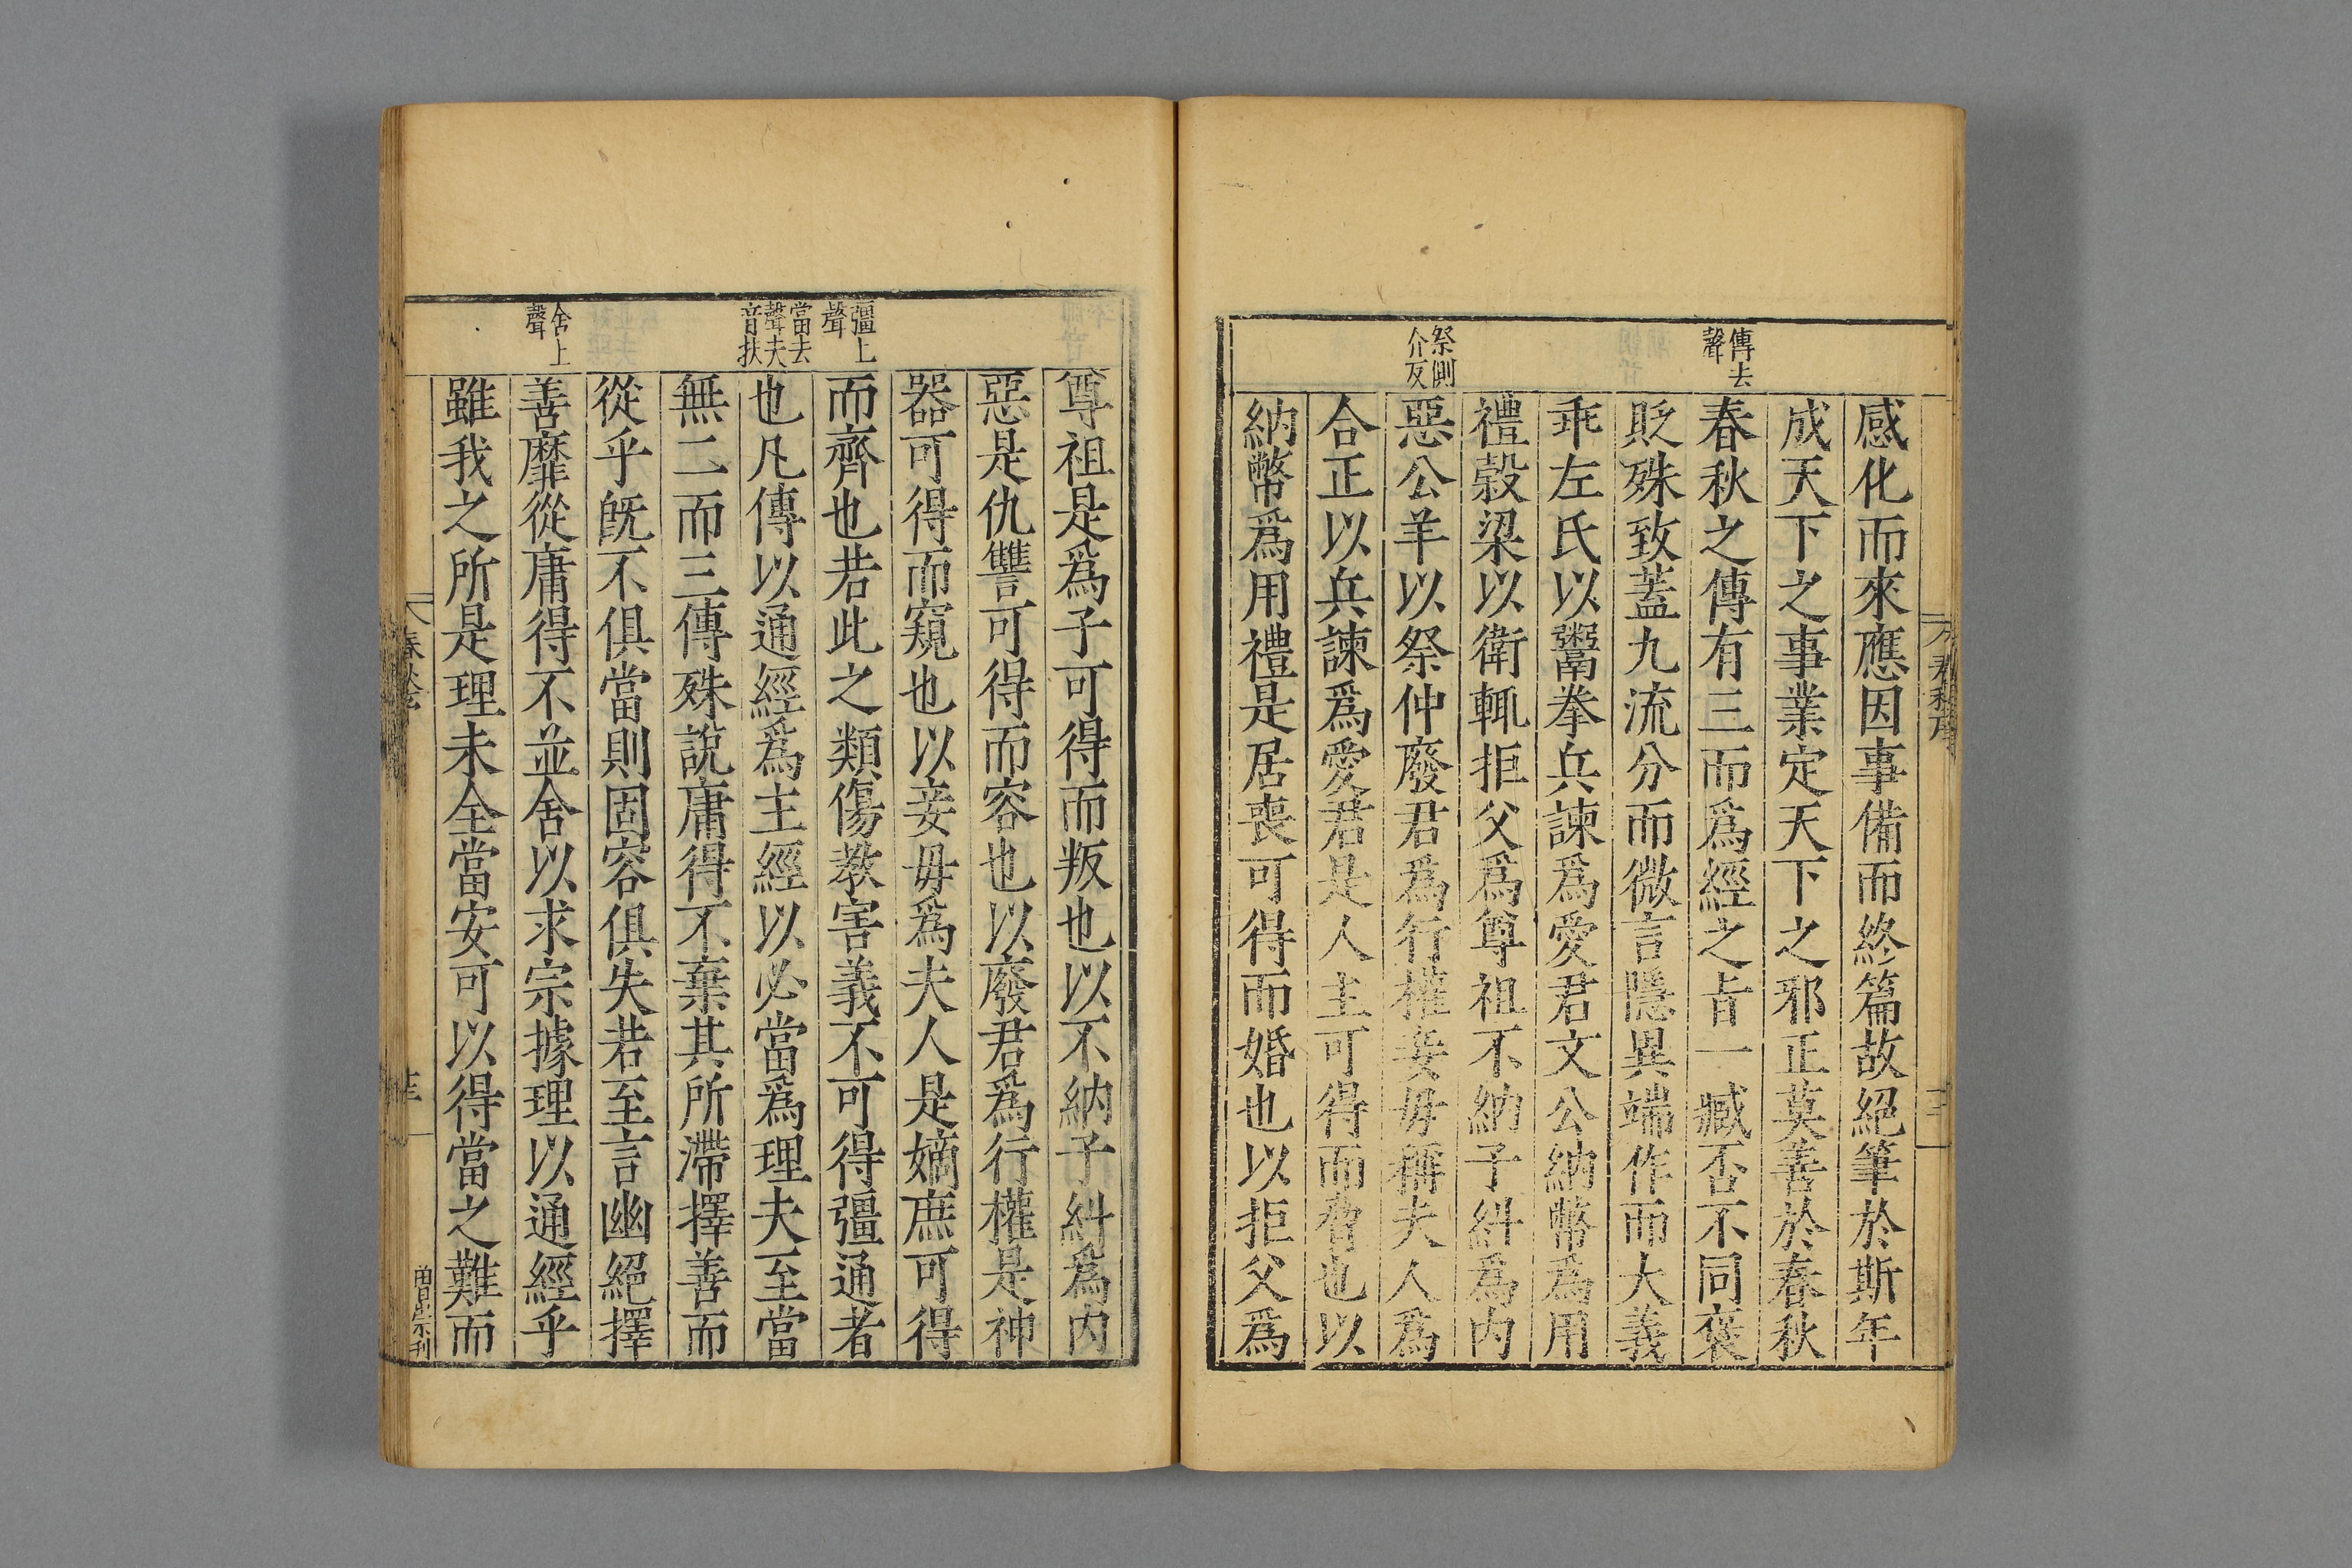 感化而來應因事備而終篇故絕筆於斯年
成天下之事業定天下之邪正莫善於春秋
傳去聲
春秋之傳有三而爲經之旨一臧否不同褒
貶殊致蓋九流分而微言隱異端作而大義
乖左氏以鬻拳兵諫爲愛君文公納幣爲用
禮榖梁以衛輒拒父爲尊祖不納子糾爲內
祭側介反
惡公羊以祭仲廢君爲行權妾母稱夫人爲
合正以兵諫爲愛君是人主可得而脅也以
納幣爲用禮是居喪可得而婚也以拒父爲
尊祖是爲子可得而叛也以不納子糾爲內
惡是仇讐可得而容也以廢君爲行權是神
器可得而窺也以妾母爲夫人是嫡庶可得
彊上聲
而齊也若此之類傷教害義不可得彊通者
當去聲夫音扶
也凡傳以通經爲主經以必當爲理夫至當
無二而三傳殊說庸得不棄其所滯擇善而
從乎旣不俱當則固容俱失若至言幽絕擇
舍上聲
善靡從庸得不並舍以求宗據理以通經乎
雖我之所是理未全當安可以得當之難而